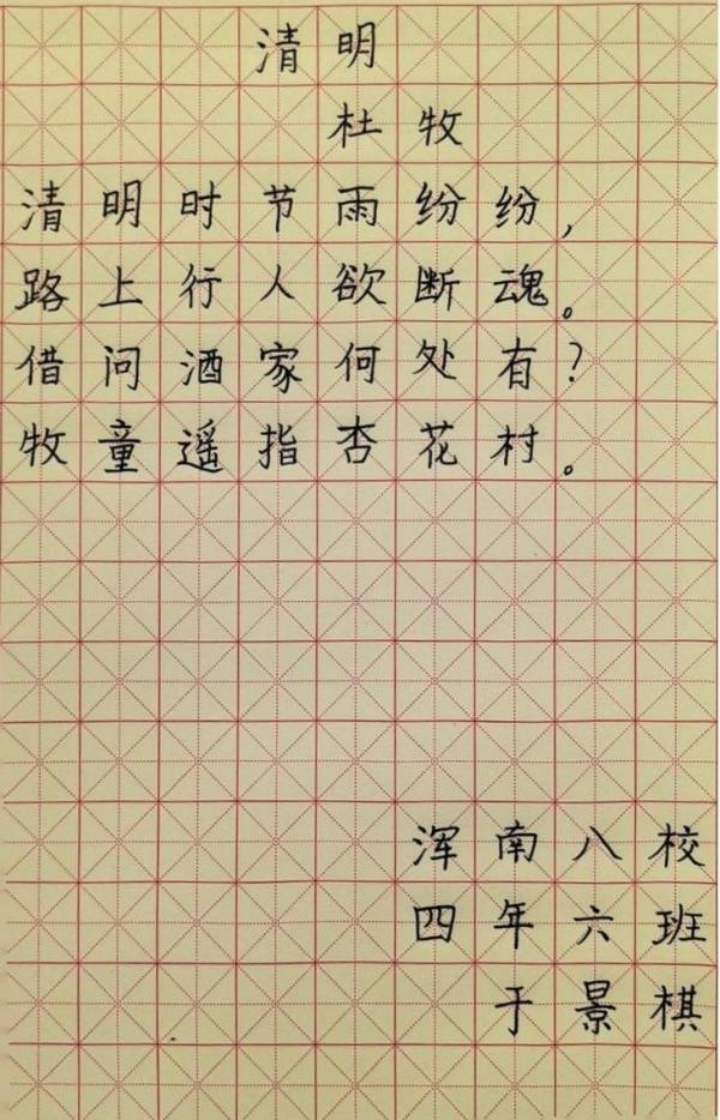 清明
杜牧
清明时节雨纷纷，
路上行人欲断魂。
借问酒家何处有？
牧童遥指杏花村。
浑南八校
四年六班
于景棋